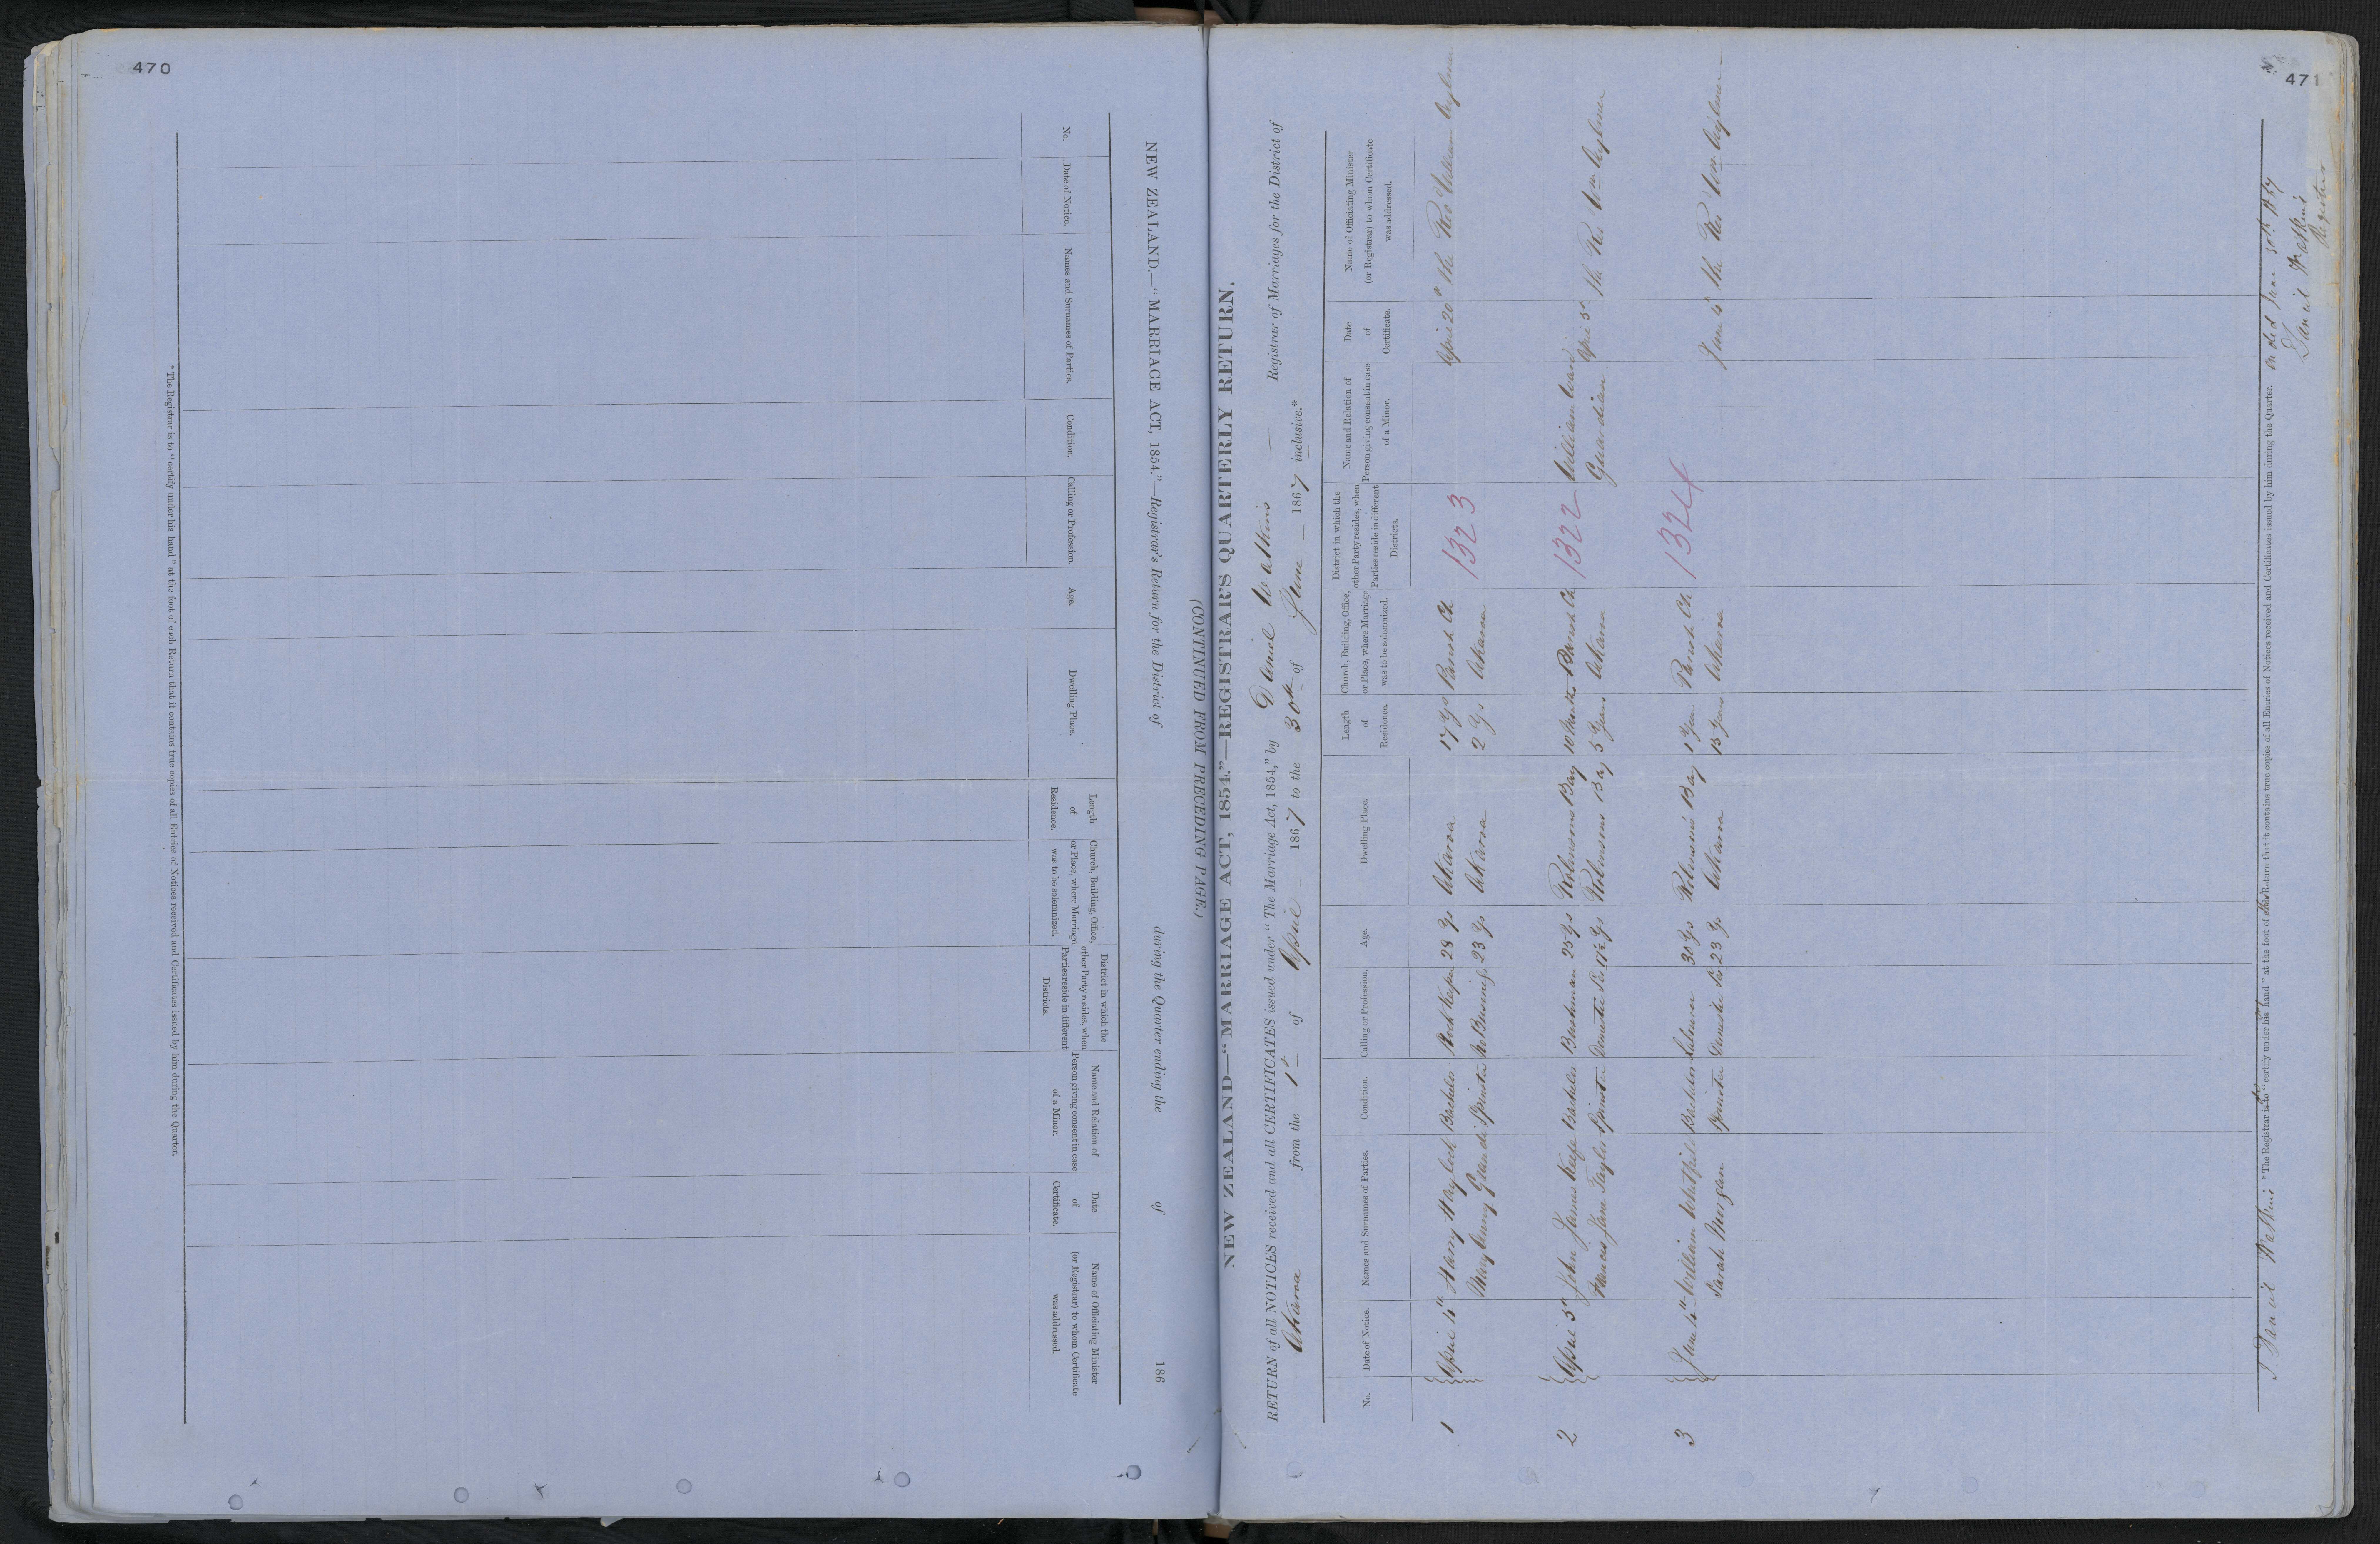 470
NEW ZEALAND.—"MARRIAGE ACT, 1854."—Registrar's Return for the District of during the Quarter ending the of 186
No.
Date of Notice.
Names and Surnames of Parties.
Condition.
Calling or Profession.
Age.
Dwelling Place.
Length of Residence.
Church, Building, Office, or Place, where Marriage was to be solemnized.
District in which the other Party resides, when Parties reside in different Districts.
Name and Relation of Person giving consent in case of a Minor.
Date of Certificate.
Name of Officiating Minister (or Registrar) to whom Certificate was addressed.
* The Registrar is to "certify under his hand" at the foot of each Return that it contains true copies of all Entries of Notices received and Certificates issued by him during the Quarter.
471
(CONTINUED FROM PRECEDING PAGE.)
NEW ZEALAND—"MARRIAGE ACT, 1854."—REGISTRAR'S QUARTERLY RETURN.
RETURN of all NOTICES received and all CERTIFICATES issued under "The Marriage Act, 1854," by Daniel Watkins Registrar of Marriages for the District of
Akaroa from the 1st of April 1867 to the 30th of June 1867 inclusive.*
No.
Date of Notice.
Names and Surnames of Parties.
Condition.
Calling or Profession.
Age.
Dwelling Place.
Length of Residence.
Church, Building, Office, or Place, where Marriage was to be solemnized.
District in which the other Party resides, when Parties reside in different Districts.
Name and Relation of Person giving consent in case of a Minor.
Date of Certificate.
Name of Officiating Minister (or Registrar) to whom Certificate was addressed.
1 April Harry Haylock Bachelor 28 Ys Akaroa 17 Ys Parish Ch 1323 April 20th The Revd William Aylmer
Spinster No Business 23 Ys Akaroa 2 Ys Akaroa
2 April 5th John James Bachelor Bushman 25 Ys Robinsons Bay 10 Months Parish Ch 1322 William April 5th The Rev Wm Aylmer
Frances Jane Taylor Spinster Domestic Ser 17½ Ys Robinsons Bay 5 Years Akaroa Guardian
3 June William Bachelor Labourer 30 Ys Robinsons Bay 1 Year Parish Ch 1324 June The Rev Wm Aylmer
Sarah Morgan Spinster Domestic Ser 23 Ys Akaroa Years Akaroa
I Daniel Watkins * The Registrar is to "certify under his hand" at the foot of this Return that it contains true copies of all Entries of Notices received and Certificates issued by him during the Quarter. June 30th 1867
Daniel Watkins
Registrar